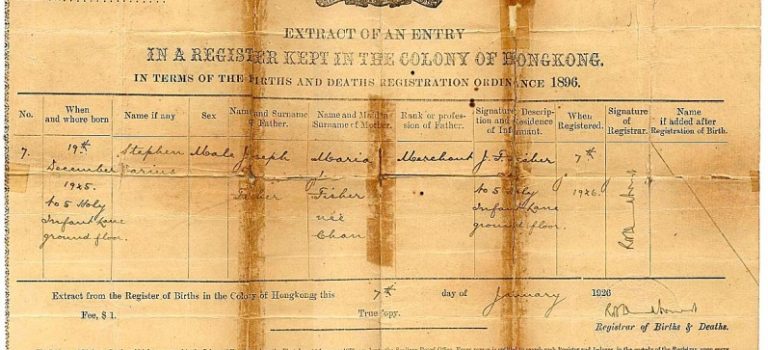 EXTRACT OF AN ENTRY
IN A REGISTER KEPT IN THE COLONY OF HONGKONG.
IN TERMS OF THE BIRTHS AND DEATHS REGISTRATION ORDINANCE 1896.
No. When and where born Name if any Sex Name and Surname of Father. Name and Maiden Surname of Mother. Rank or profession of Father. Signature, Description and Residence of Informant. When Registered. Signature of Registrar. Name if added after Registration of Birth.
7. 19th Stephen Male Joseph Maria Merchant J. F. Fisher 7th
December
1925. Fisher Fisher No 5 Holy 1926.
No 5 Holy née Infant Lane
Infant Lane Chan ground floor.
ground floor.
Extract from the Register of Births in the Colony of Hongkong; this 7th day of January 1926
Fee, $ 1. True Copy.
Registrar of Births & Deaths.